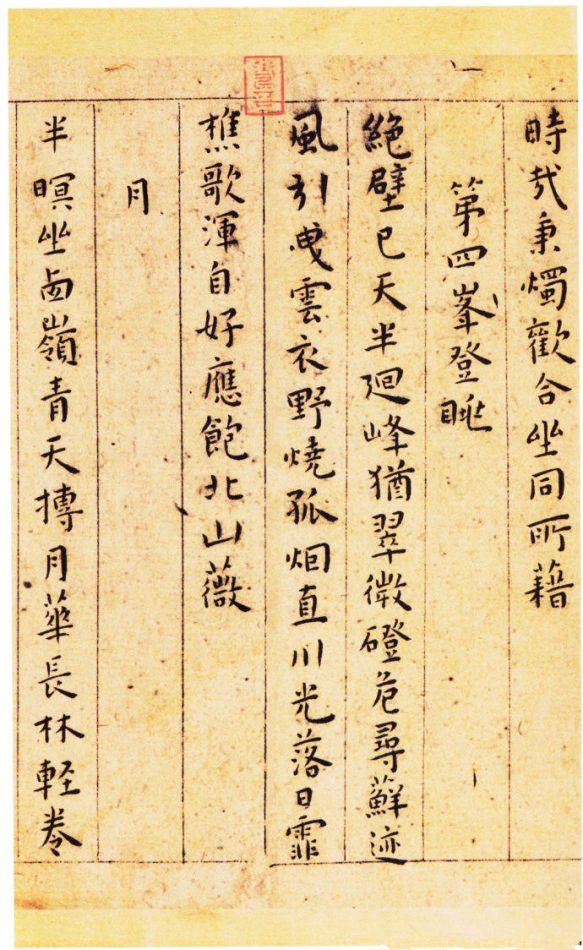 時哉秉燭歡合坐同所藉
第四峯登眺
絶壁已天半迴峰猶翠微磴危尋蘚迹
風引曳雲衣野燒孤烟直川光落日霏
樵歌渾自好應飽北山薇
月
半暝坐西嶺青天摶月華長林輕卷